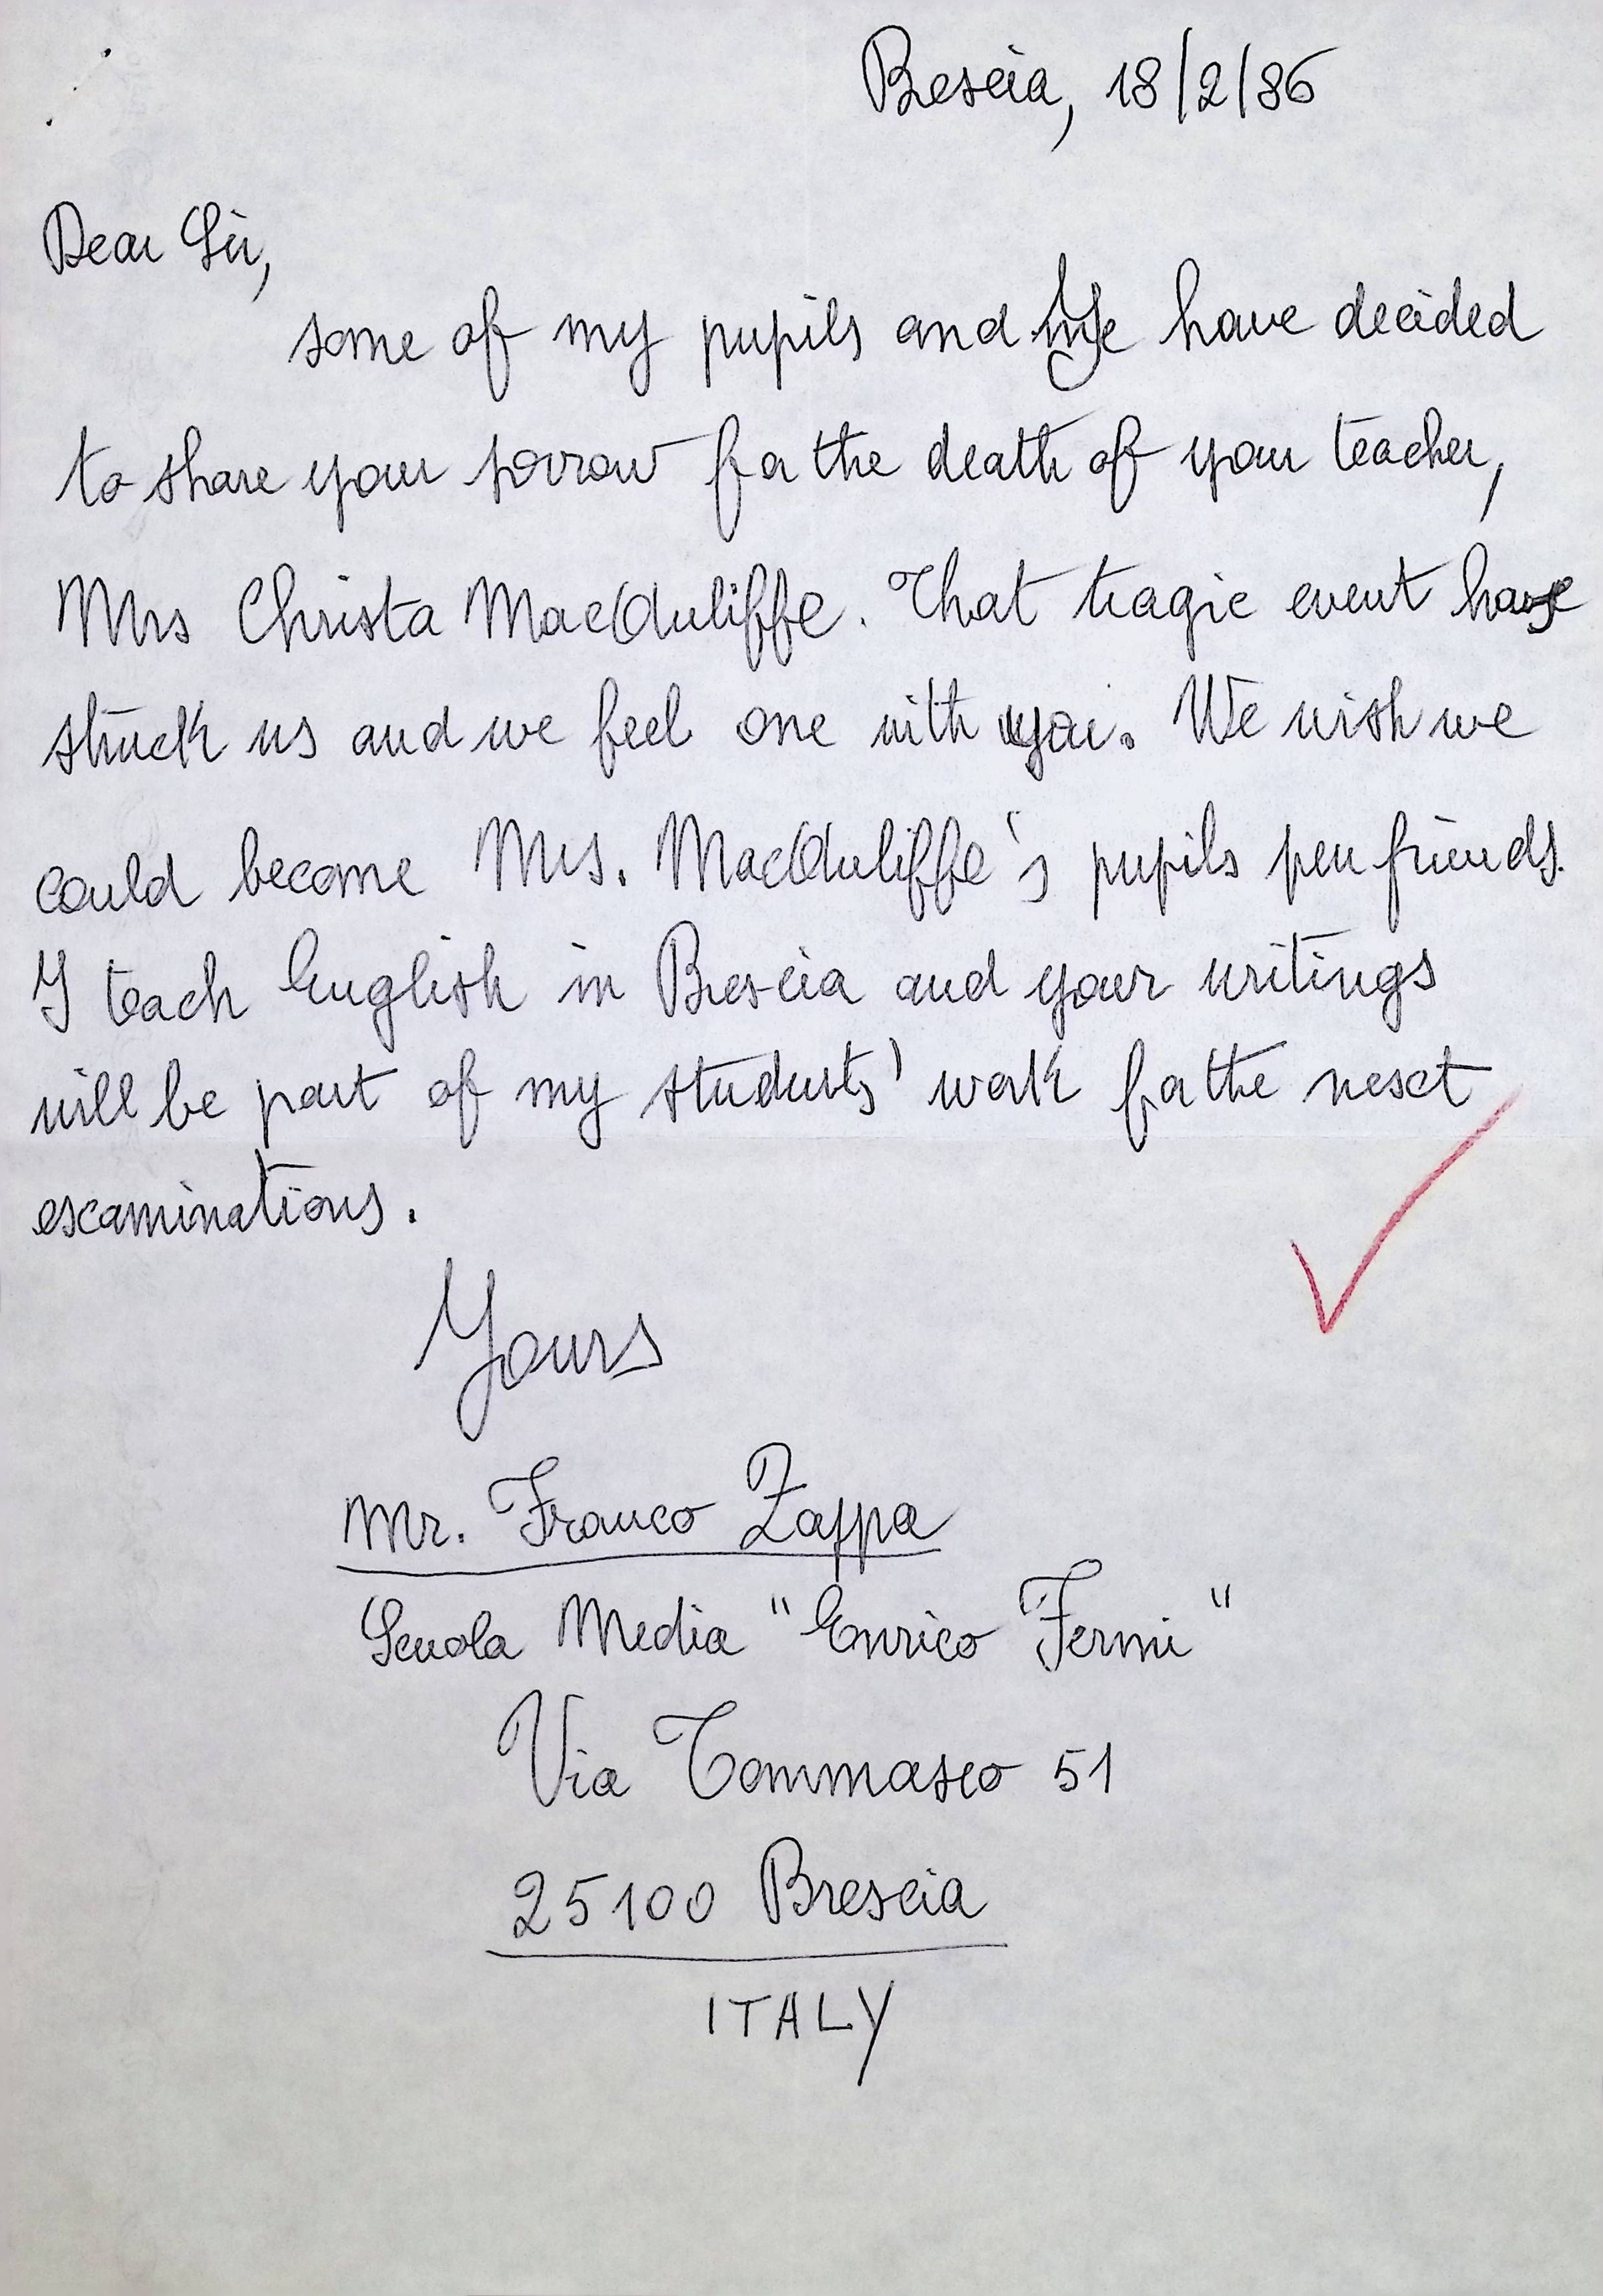 Brescia, 18/2/86
Dear Sir,
some of my pupils and I have decided
to share your sorrow for the death of your teacher,
Mrs Christa MacAuliffe. That tragic event has
struck us and we feel one with you. We wish we
could become Mrs. MacAuliffe's pupils pen friends.
I teach English in Brescia and your writings
will be part of my students' work for the next
examinations.
Yours
Mr. Franco Zappa
Scuola Media "Enrico Fermi"
Via Tommaseo 51
25100 Brescia
ITALY